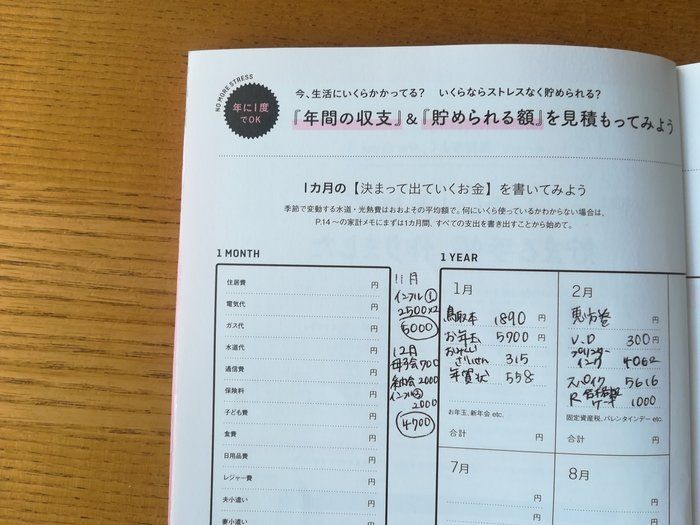 NO MORE STRESS
年に1度
でOK
今、生活にいくらかかってる？ いくらならストレスなく貯められる？
『年間の収支』&『貯められる額』を見積もってみよう
1カ月の【決まって出ていくお金】を書いてみよう
季節で変動する水道・光熱費はおおよその平均額で。何にいくら使っているかわからない場合は、
P.14〜の家計メモにまずは1カ月間、すべての支出を書き出すことから始めて。
1 MONTH
住居費 円
電気代 円
ガス代 円
水道代 円
通信費 円
保険料 円
子ども費 円
食費 円
日用品費 円
レジャー費 円
夫小遣い 円
妻小遣い 円
11月
インフル①
2500×2
5000
12月
700
2000
インフル②
2000
4700
1 YEAR
1月
鳥取本 1890 円
お年玉 5900 円
さいせん 315
年賀状 558
お年玉、新年会 etc.
合計 円
2月
恵方巻 円
V.D 300円
プリンター
インク 4062
スパイク 5616
ケーキ 1000
固定資産税、バレンタインデー etc.
合計 円
7月
円
円
8月
円
円